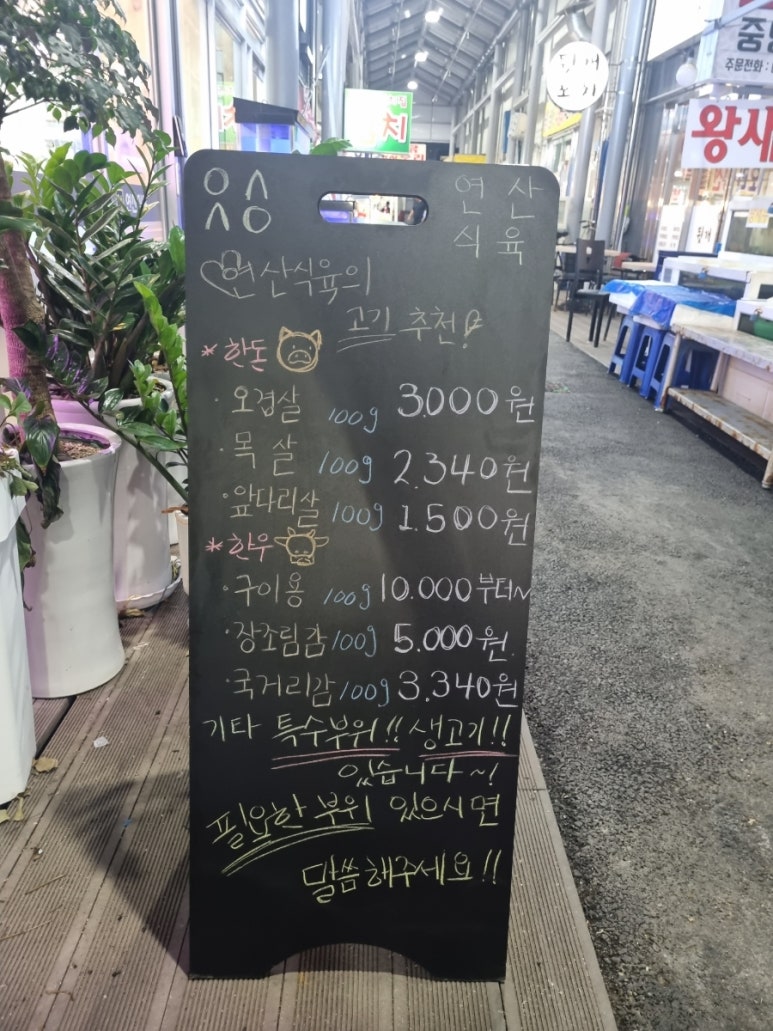 ㅇㅅ
ㅅㅇ
연산
식육
연산식육의
고기 추천!
* 한돈
· 오겹살 100g 3.000원
· 목살 100g 2.340원
· 앞다리살 100g 1.500원
* 한우
· 구이용 100g 10.000부터~
· 장조림감 100g 5.000원
· 국거리감 100g 3.340원
기타 특수부위!! 생고기!!
있습니다~!
필요한 부위 있으시면
말씀해주세요!!
주문전화:
왕새